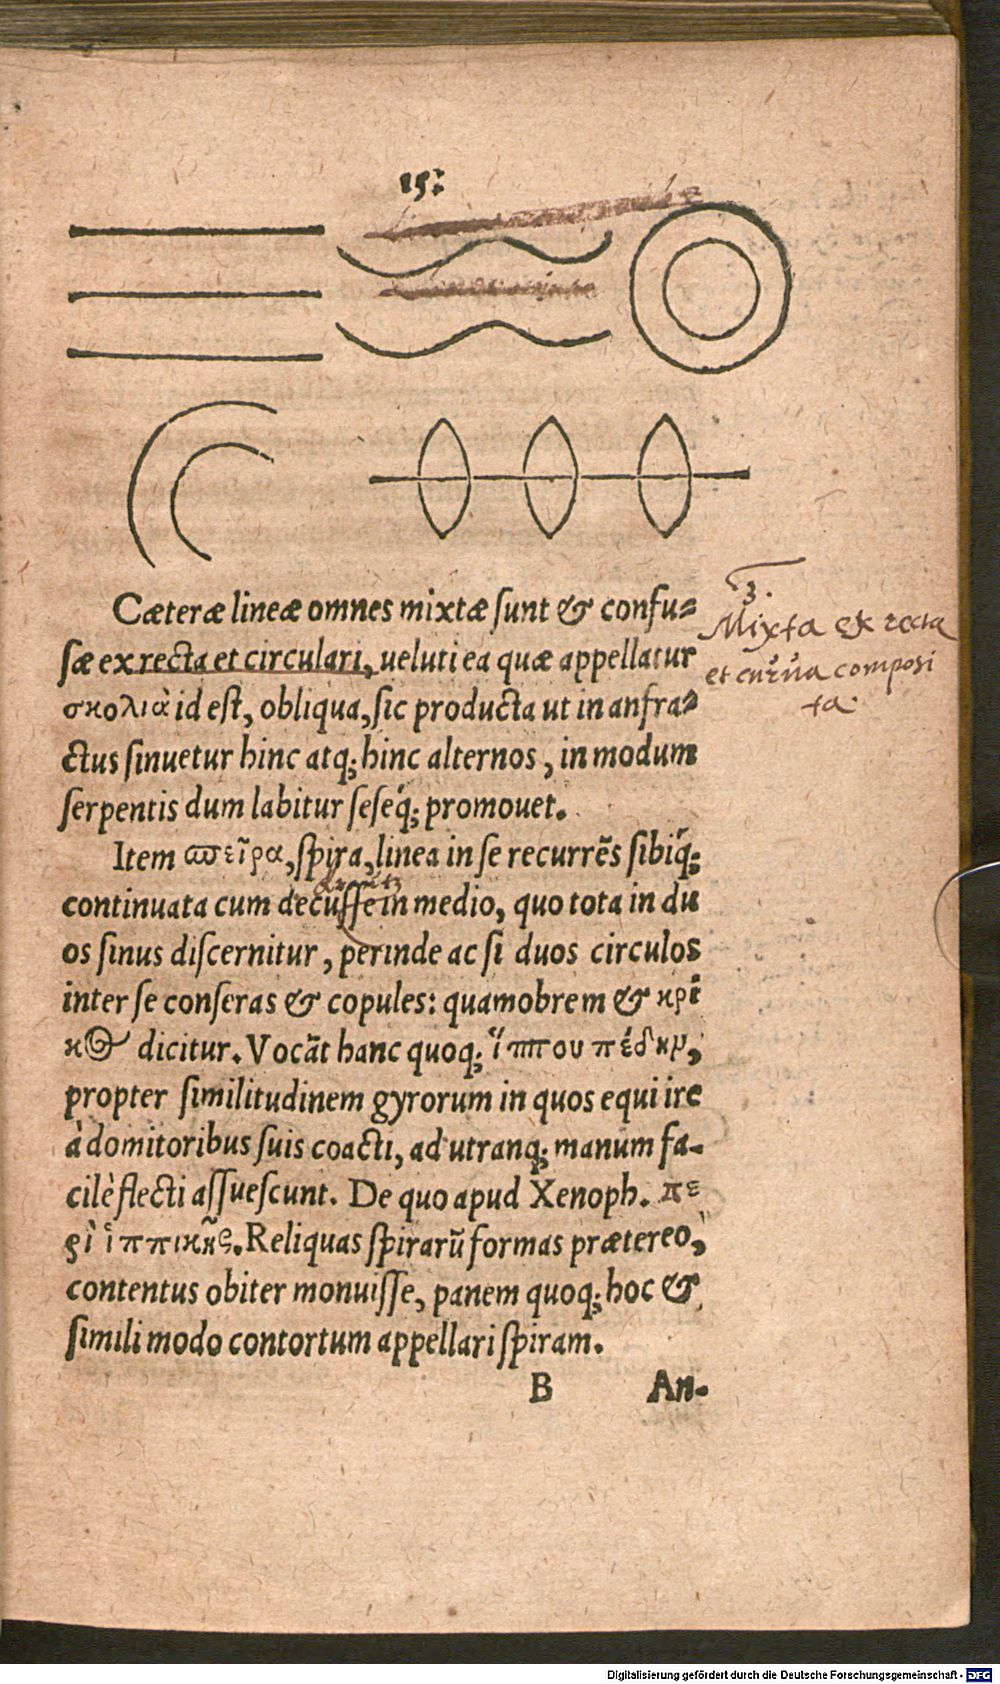 15:
Cæteræ lineæ omnes mixtæ sunt & confu-
sæ ex recta et circulari, ueluti ea quæ appellatur
σκολιὰ id est, obliqua, sic producta ut in anfra-
ctus sinuetur hinc atq; hinc alternos, in modum
serpentis dum labitur seseq́; promouet.
3.
Mixta ex recta
et curua composi
ta.
Item ϖεῖρα, spira, linea in se recurrẽs sibiq́;
continuata cum decusse in medio, quo tota in du
os sinus discernitur, perinde ac si duos circulos
inter se conseras & copules: quamobrem & κρί
κος dicitur. Vocãt hanc quoq; ἵππου πέδην,
propter similitudinem gyrorum in quos equi ire
à domitoribus suis coacti, ad utranq; manum fa-
cilè flecti assuescunt. De quo apud Xenoph. πε
ρὶ ἱππικῆς. Reliquas spirarũ formas prætereo,
contentus obiter monuisse, panem quoq; hoc &
simili modo contortum appellari spiram.
B An-
Digitalisierung gefördert durch die Deutsche Forschungsgemeinschaft - DFG